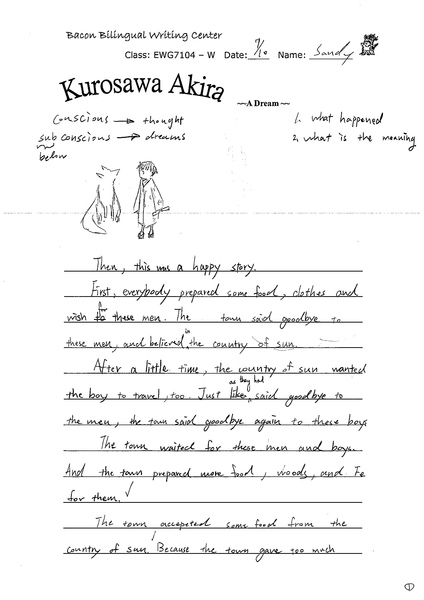 Bacon Bilingual Writing Center
Class: EWG7104 – W Date: 7/10 Name: Sandy
Kurosawa Akira
~~A Dream~~
Conscious → thought
subconscious → dreams
below
1. what happened
2. what is the meaning
Then, this was a happy story.
First, everybody prepared some food, clothes and
wish for these men. The town said goodbye to
these men, and believed in the country of sun.
After a little time, the country of sun wanted
the boy to travel, too. Just like as they had said goodbye to
the men, the town said goodbye again to these boys
The town waited for these men and boys.
And the town prepared more food, woods, and
for them.
The town accepeted some food from the
country of sun. Because the town gave too much
1